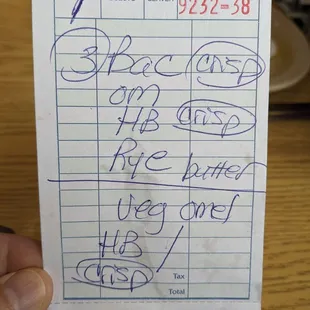 9232-38
3 Bac crisp
om
HB crisp
Rye butter
Veg omel
HB
crisp
Tax
Total